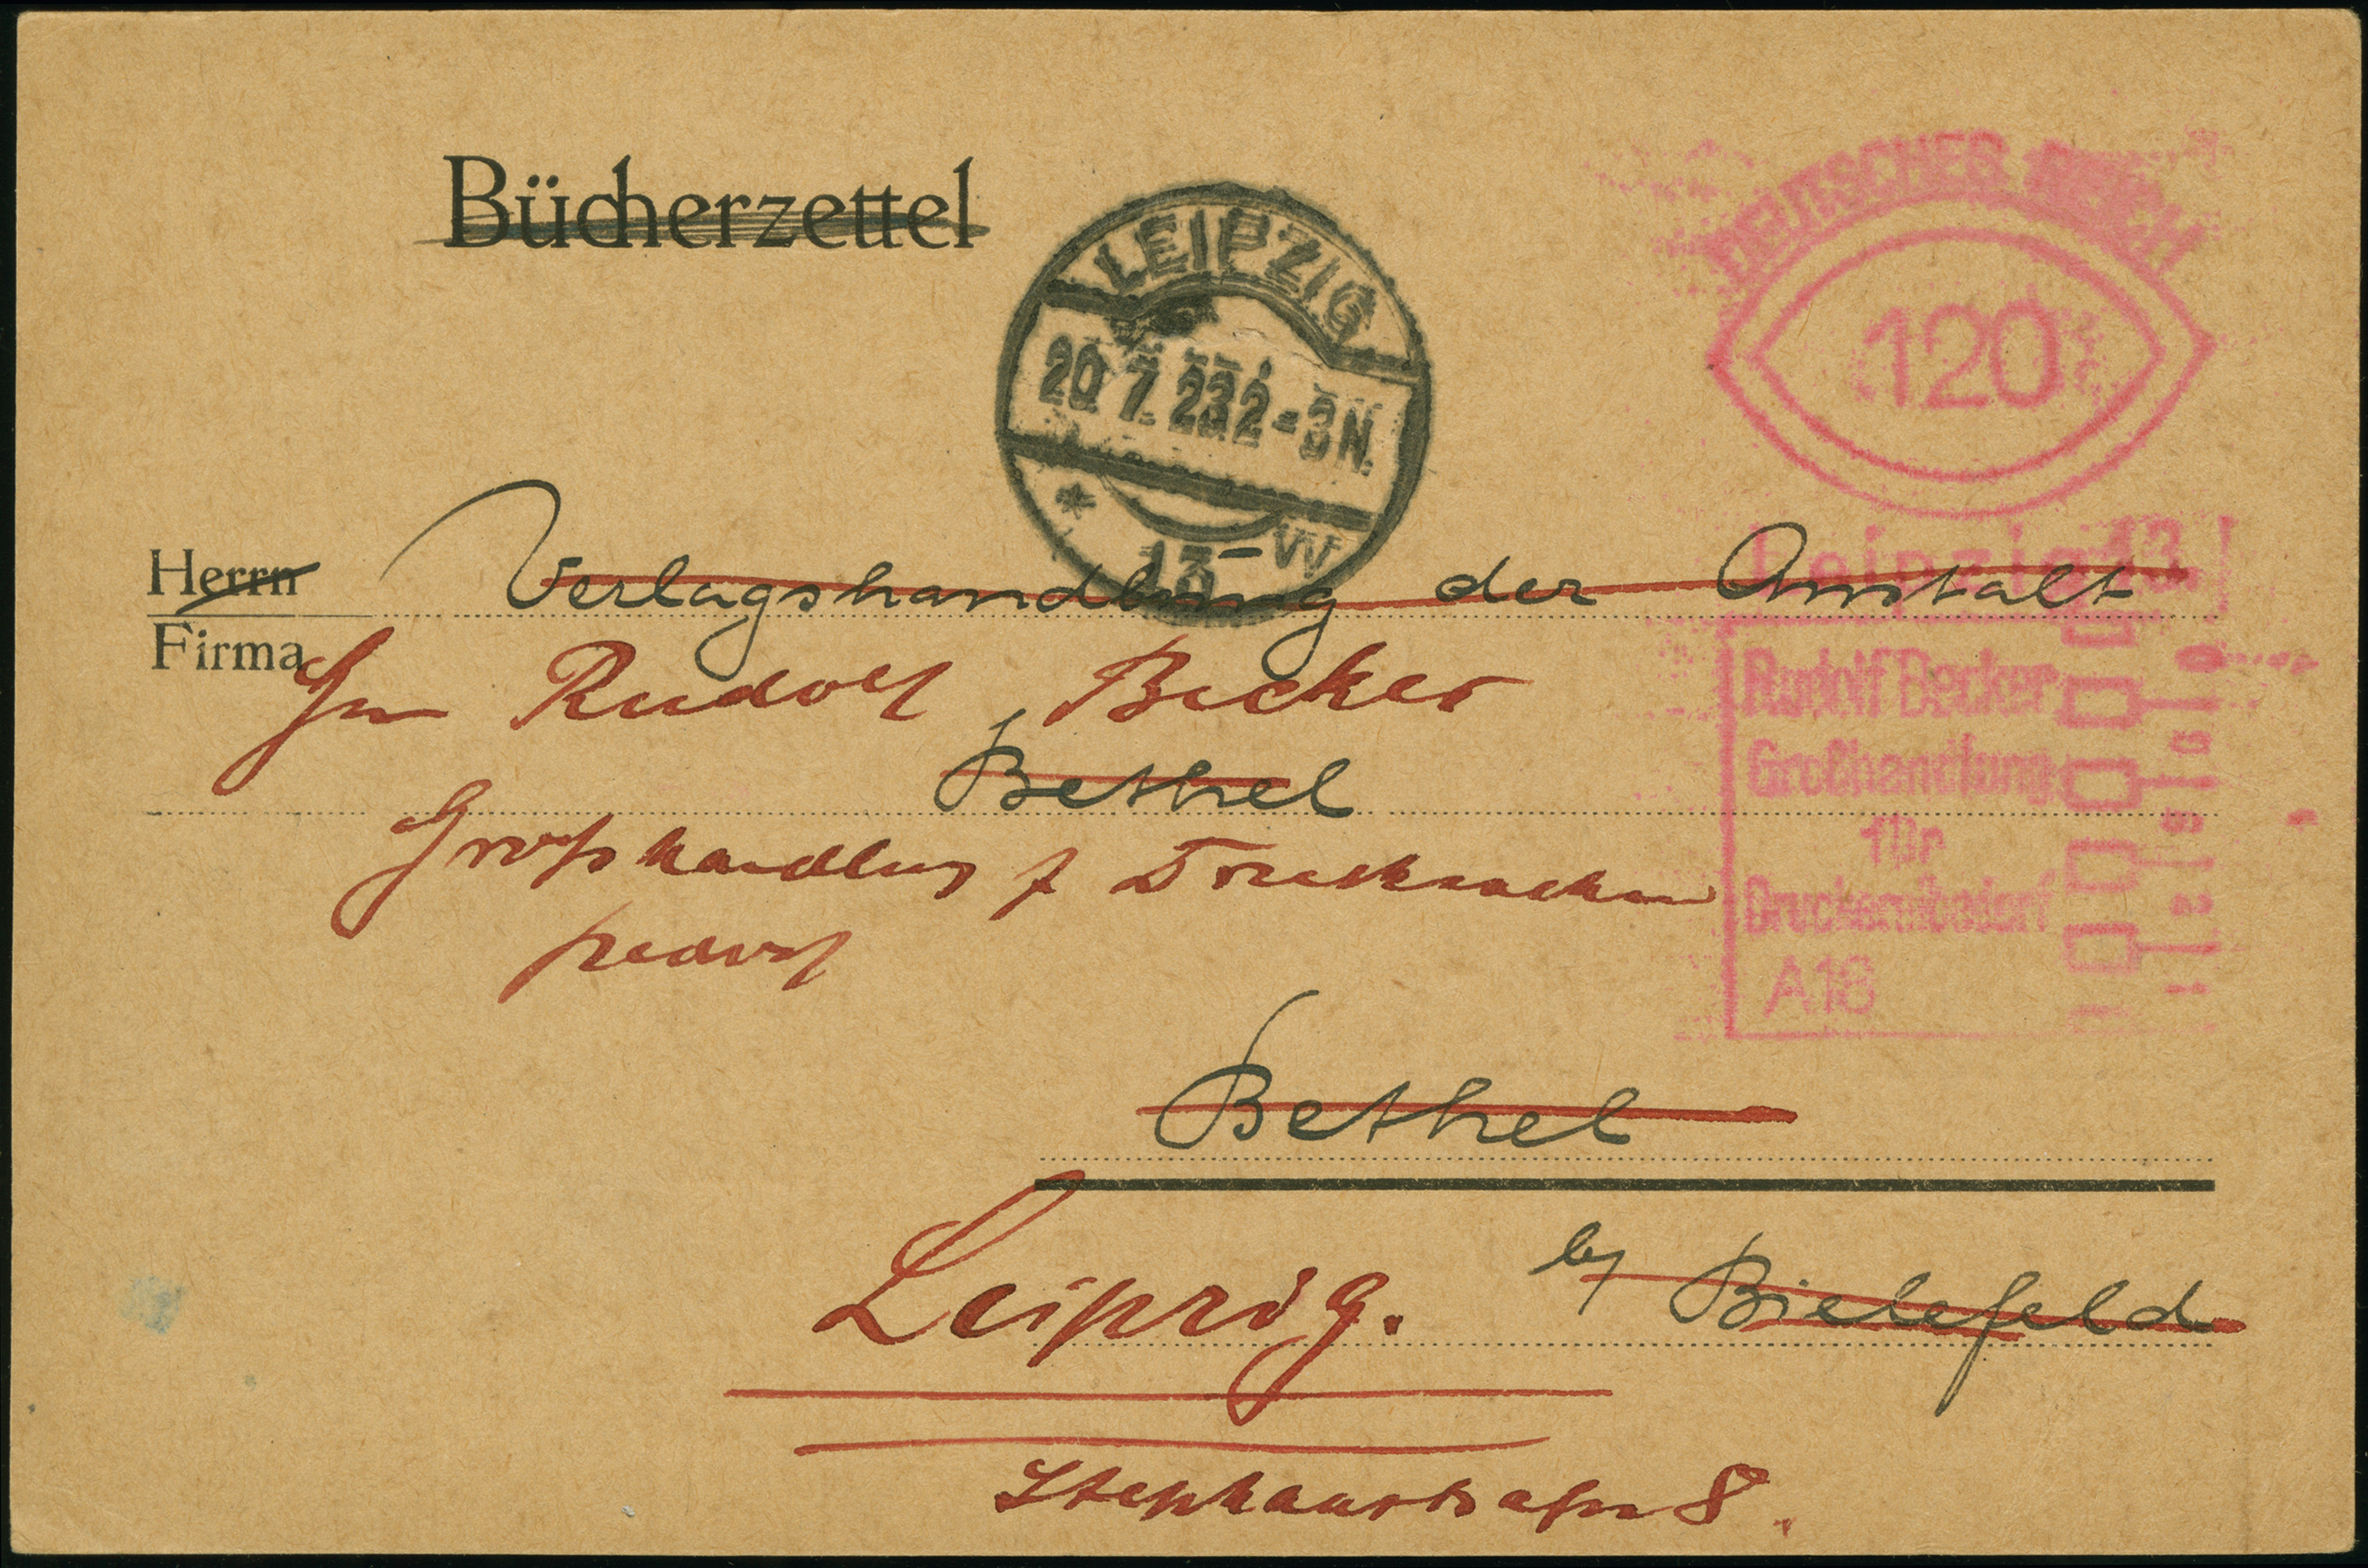 Bücherzettel
LEIPZIG
20.7.23.2-3N.
* 13
DEUTSCHES REICH
120
Leipzig 13
Herrn
Firma
Verlagshandlung der Anstalt
Rudolf Becker
Bethel
Großhandlung f Drucksachen
bedarf
Rudolf Becker
Großhandlung
für
Druckereibedarf
A18
Bethel
Leipzig.
b/ Bielefeld
Stephanstraße 8.